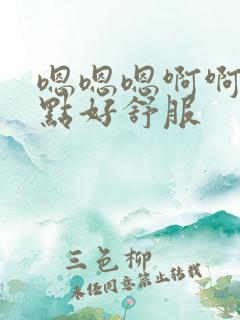 嗯嗯嗯啊啊
點好舒服
三色柳
未经同意禁止转载